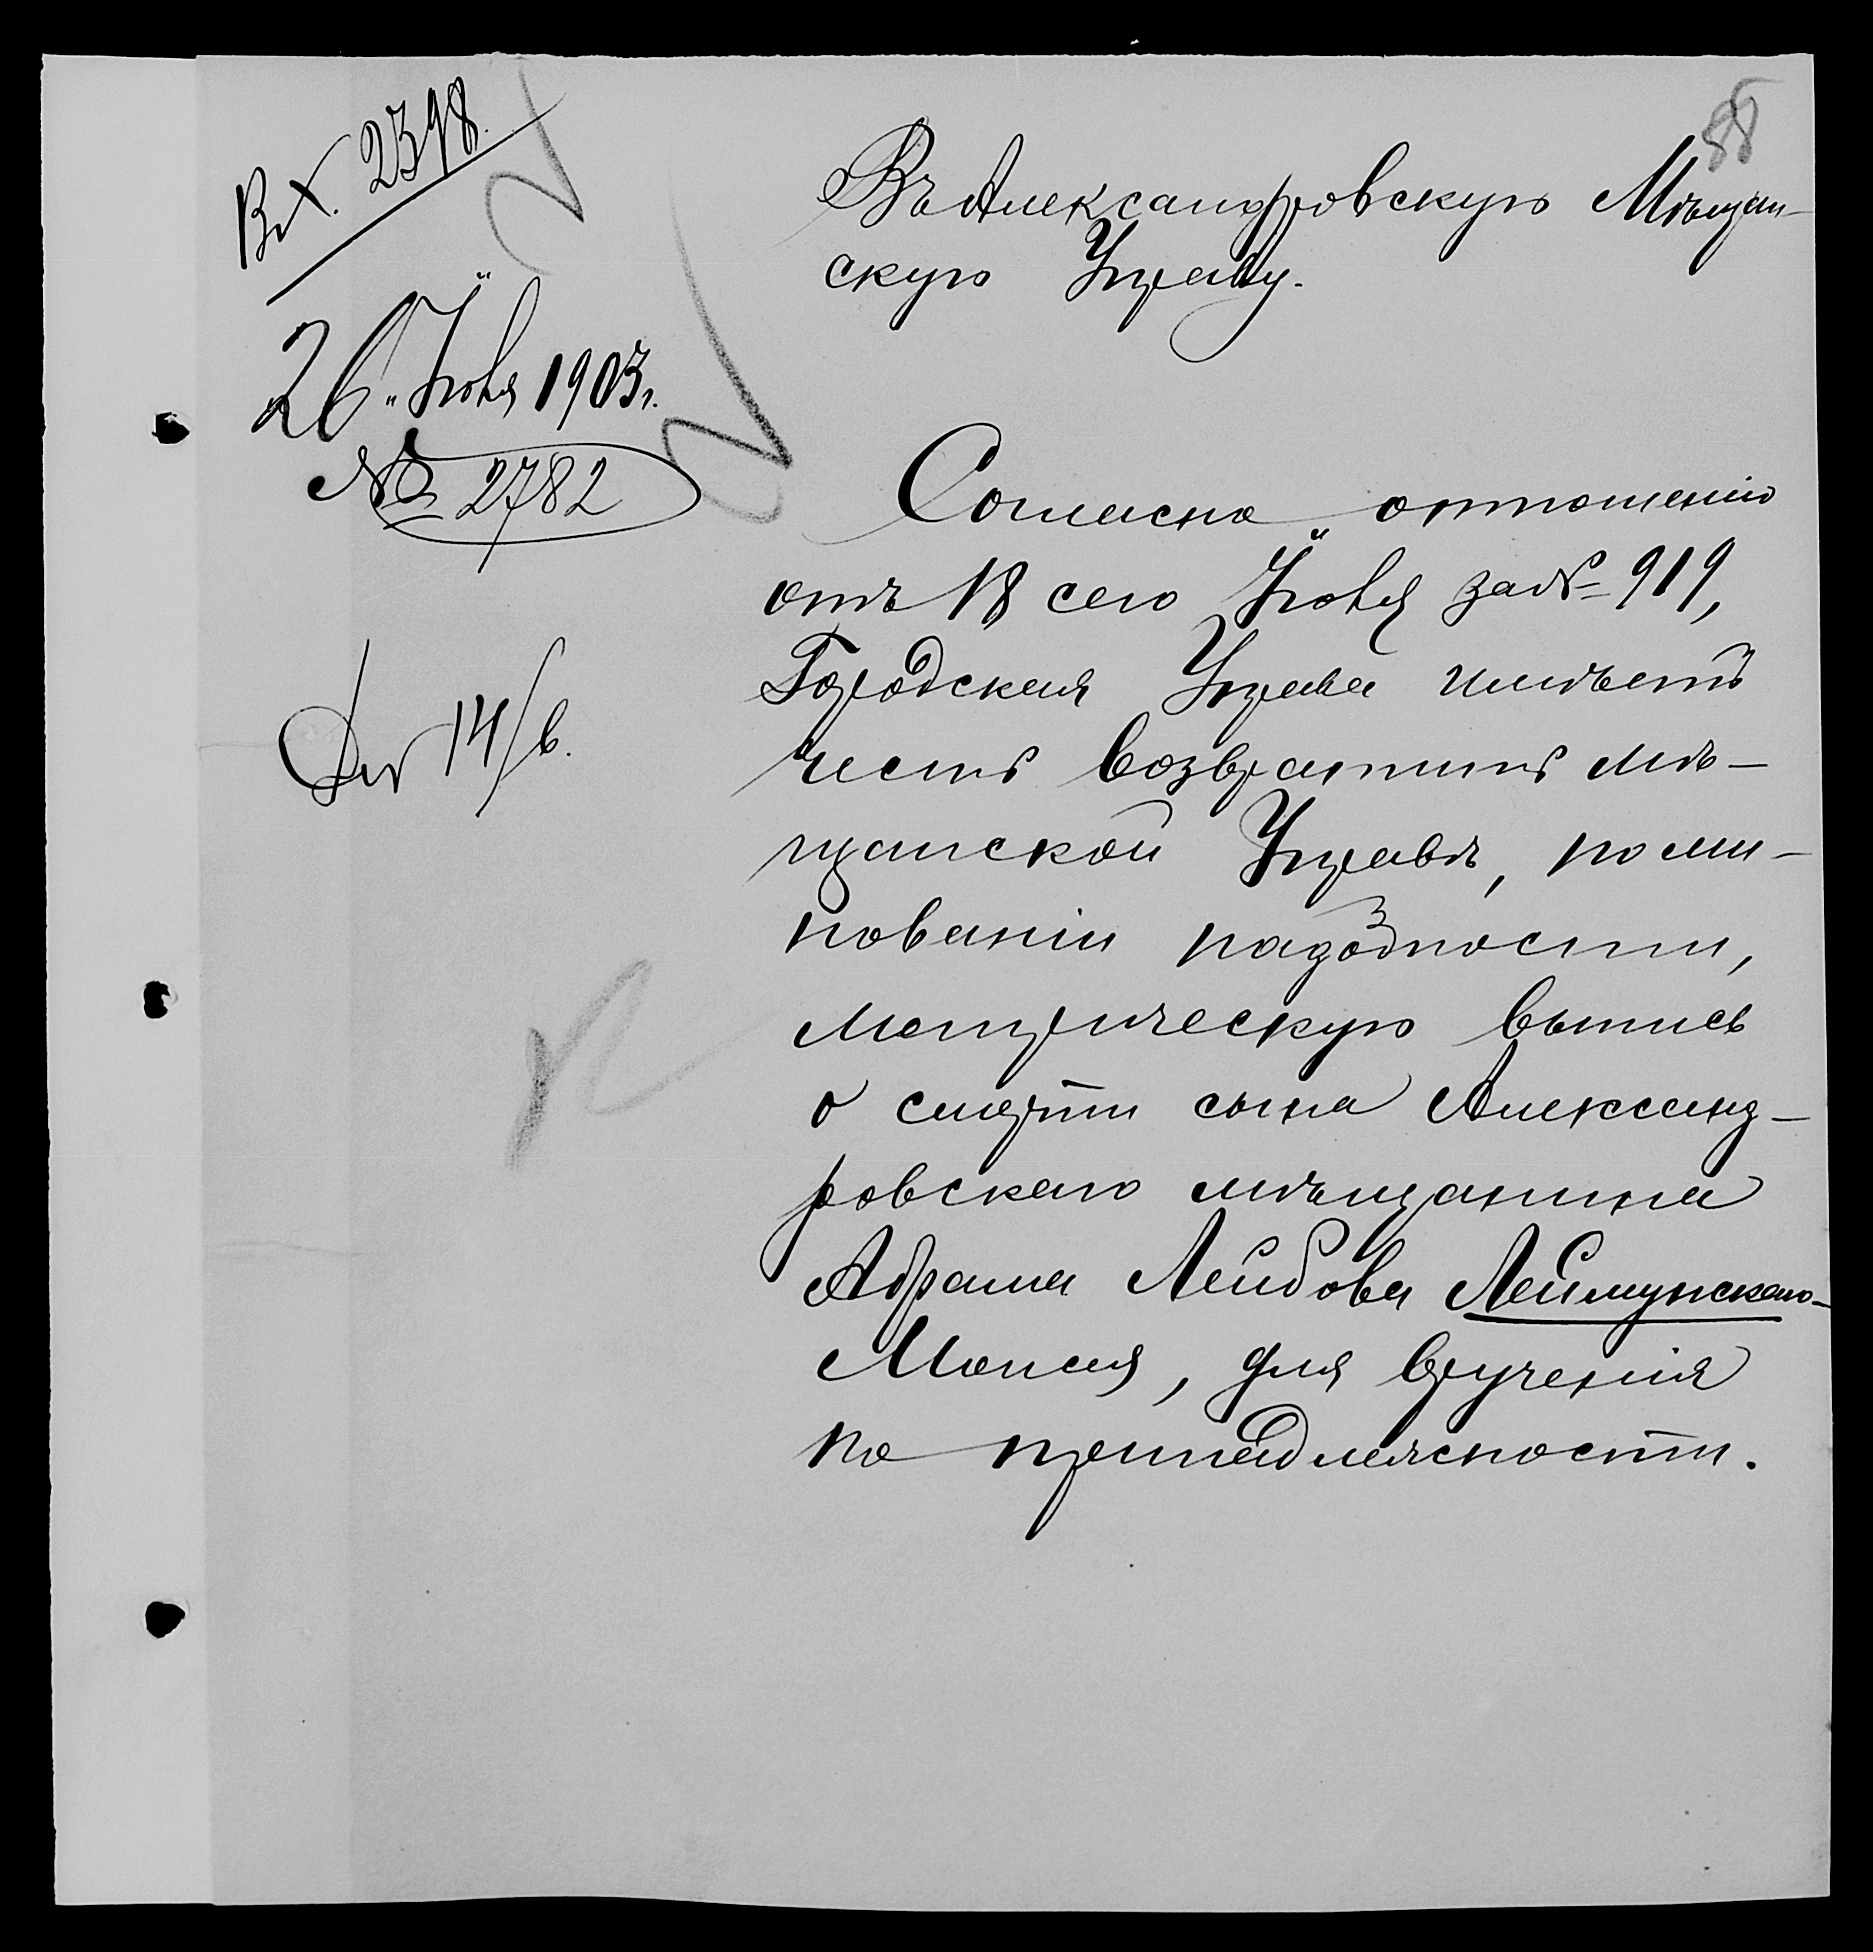 Вх. 2398.
26 „ Іюня 1903 г.
№ 2782
14/в.
88
Въ Александровскую Мѣщан-
скую Управу.
Согласно отношенію
отъ 18 сего Іюня за № 919,
Городская Управа имѣетъ
честь возвратить мѣ-
щанской Управѣ, по ми-
нованіи надобности,
метрическую выпись
о смерти сына Александ-
ровскаго мѣщанина
Абрама Лейбова Леймунскаго-
Моисея, для врученія
по принадлежности.